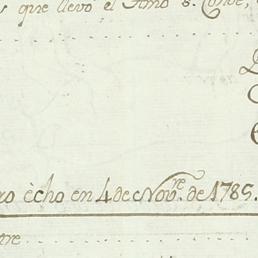 que llevó el Amo s. Conde,
ro écho en 4 de Novre. de 1785.